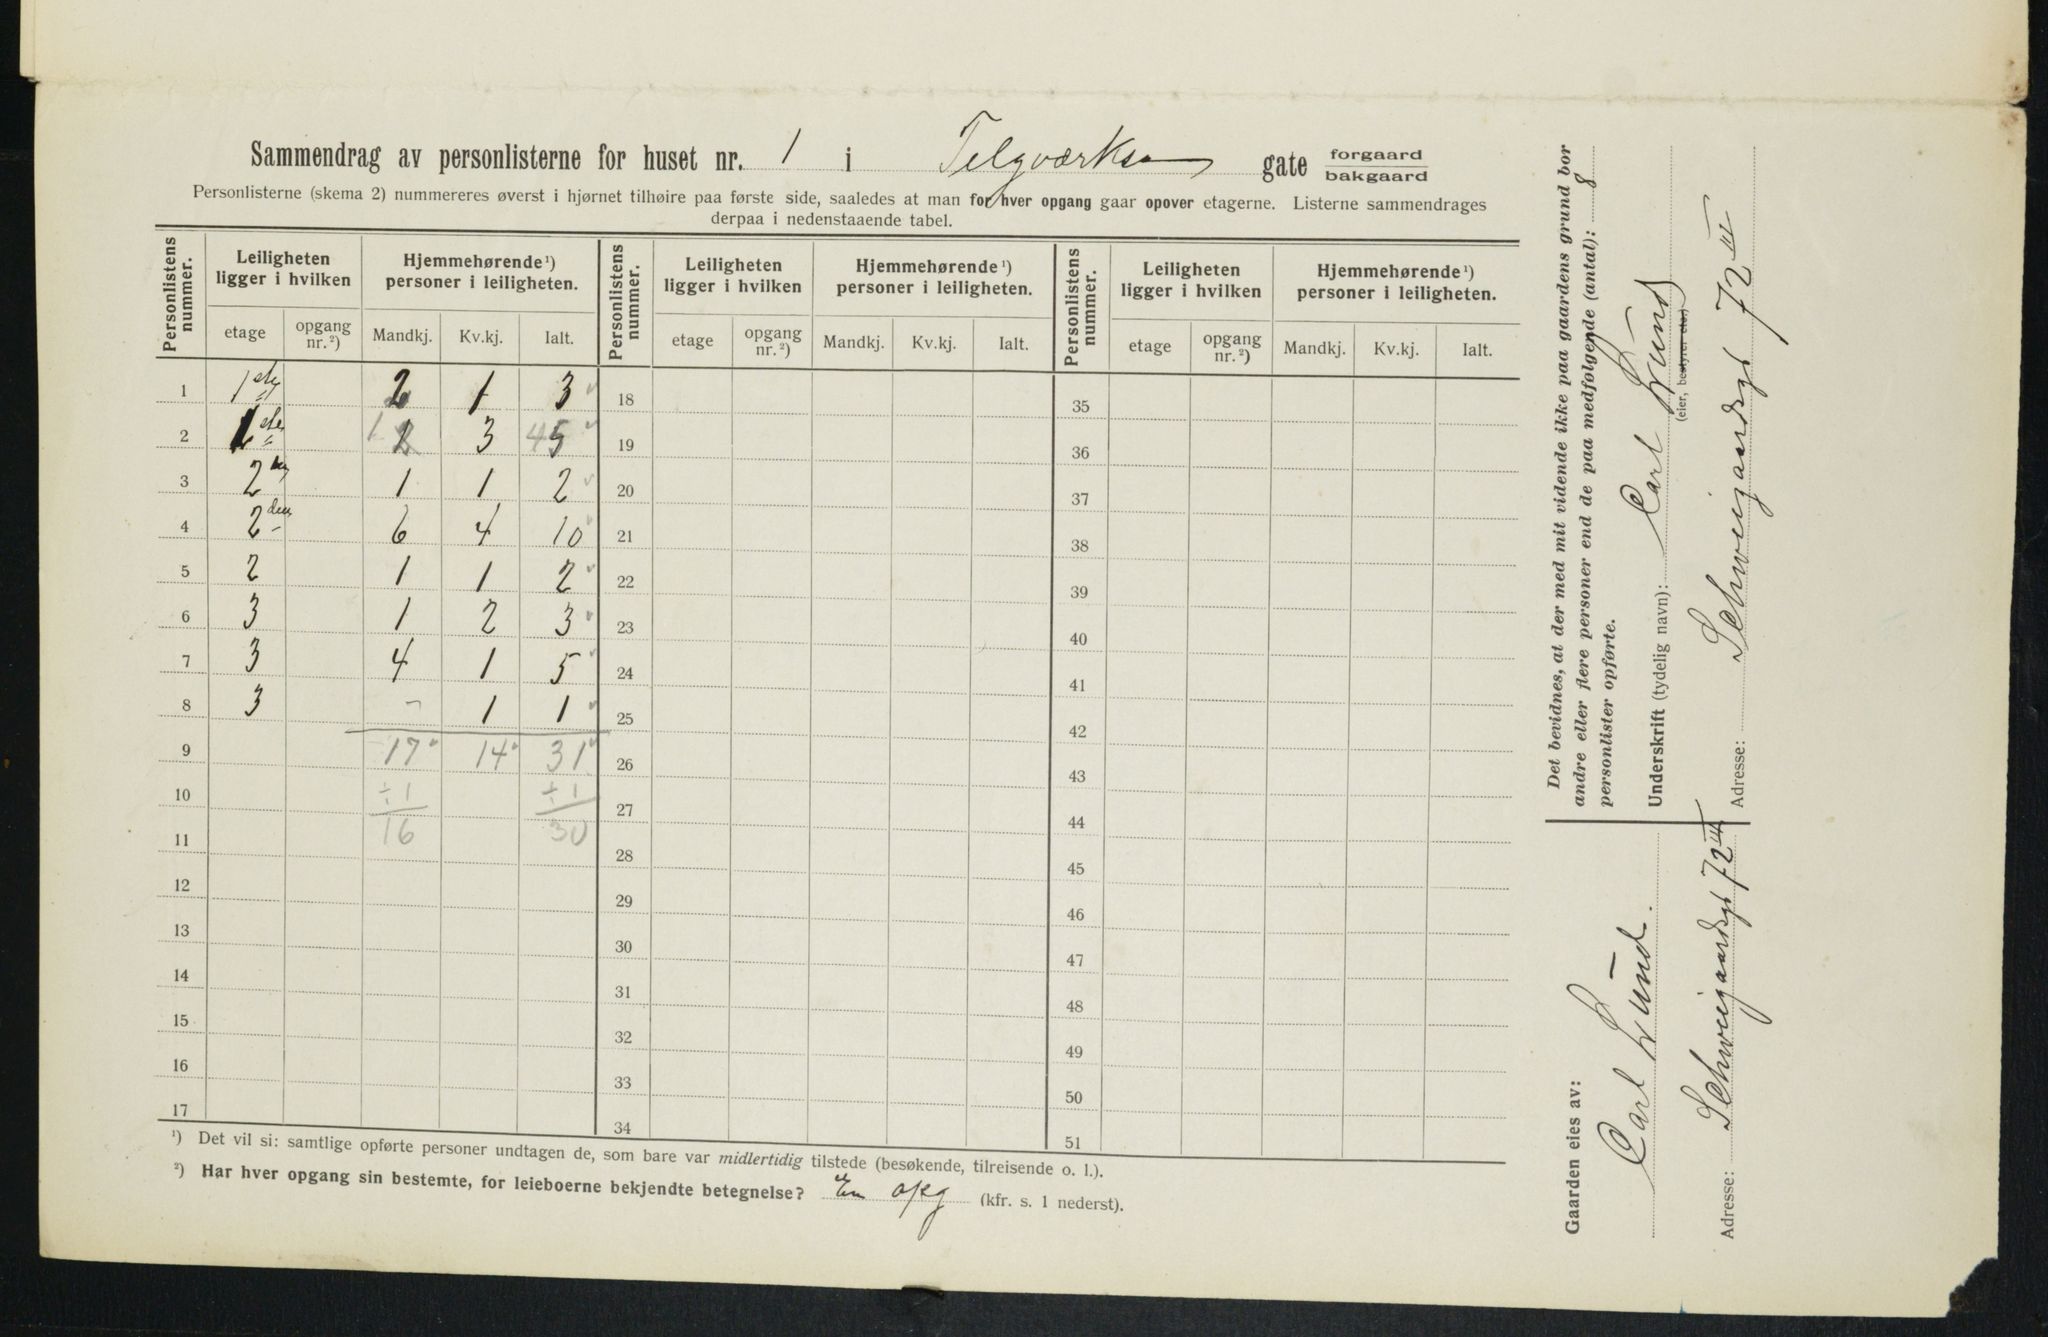 Sammendrag av personlisterne for huset nr. 1 i Telgværks gate forgaard bakgaard
Personlisterne (skema 2) nummereres øverst i hjørnet tilhøire paa første side, saaledes at man for hver opgang gaar opover etagerne. Listerne sammendrages
derpaa i nedenstaaende tabel.
Personlistens nummer. Leiligheten ligger i hvilken Hjemmehørende ¹) personer i leiligheten. Personlistens nummer. Leiligheten ligger i hvilken Hjemmehørende ¹) personer i leiligheten. Personlistens nummer. Leiligheten ligger i hvilken Hjemmehørende ¹) personer i leiligheten.
etage opgang nr. ²) Mandkj. Kv.kj. Ialt. etage opgang nr. ²) Mandkj. Kv.kj. Ialt. etage opgang nr. ²) Mandkj. Kv.kj. Ialt.
1 1ste 2 1 3 18 35
2 1ste 1 2 3 4 5 19 36
3 2den 1 1 2 20 37
4 2den 6 4 10 21 38
5 2 1 1 2 22 39
6 3 1 2 3 23 40
7 3 4 1 5 24 41
8 3 - 1 1 25 42
9 17 14 31 26 43
10 ÷1 ÷1 27 44
11 16 30 28 45
12 29 46
13 30 47
14 31 48
15 32 49
16 33 50
17 34 51
¹) Det vil si: samtlige opførte personer undtagen de, som bare var midlertidig tilstede (besøkende, tilreisende o. l.).
²) Har hver opgang sin bestemte, for leieboerne bekjendte betegnelse? En opg (kfr. s. 1 nederst).
Det bevidnes, at der med mit vidende ikke paa gaardens grund bor
andre eller flere personer end de paa medfølgende (antal): 8
personlister opførte.
Underskrift (tydelig navn): Carl Lund
(eier, bestyrer etc.)
Adresse: Schweigaardsgt 72 III
Gaarden eies av:
Carl Lund.
Adresse: Schweigaardsgt 72 III